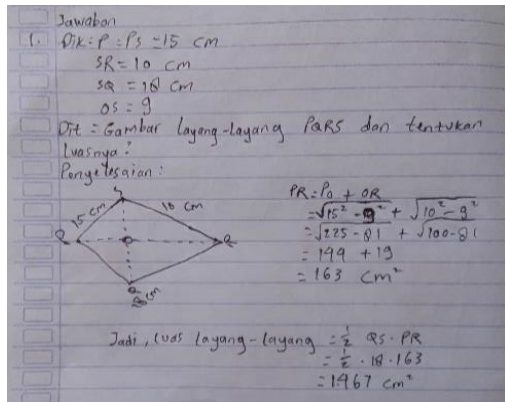 Jawaban
1. Dik: P = PS = 15 cm
SR = 10 cm
SQ = 18 cm
OS = 9
Dit = Gambar layang-layang PQRS dan tentukan
luasnya?
Penyelesaian:
S
15 cm
10 cm
R
18 cm
PR = PO + OR
= √15² - 9² + √10² - 9²
= √225 - 81 + √100 - 81
= 144 + 19
= 163 cm²
Jadi, luas layang-layang = ½ QS · PR
= ½ · 18 · 163
= 1.467 cm²